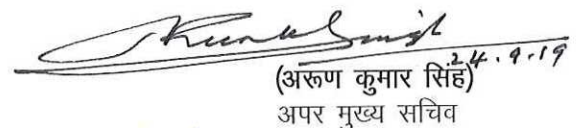 24.9.19
(अरूण कुमार सिंह)
अपर मुख्य सचिव